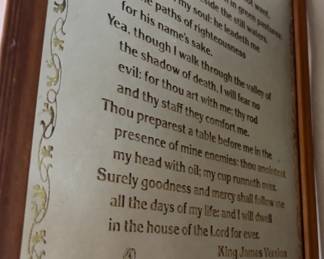 not want.
in green pastures
beside the still waters
my soul: he leadeth me
the paths of righteousness
for his name's sake.
Yea, though I walk through the valley of
the shadow of death, I will fear no
evil: for thou art with me; thy rod
and thy staff they comfort me.
Thou preparest a table before me in the
presence of mine enemies: thou anointest
my head with oil; my cup runneth over.
Surely goodness and mercy shall follow me
all the days of my life: and I will dwell
in the house of the Lord for ever.
King James Version